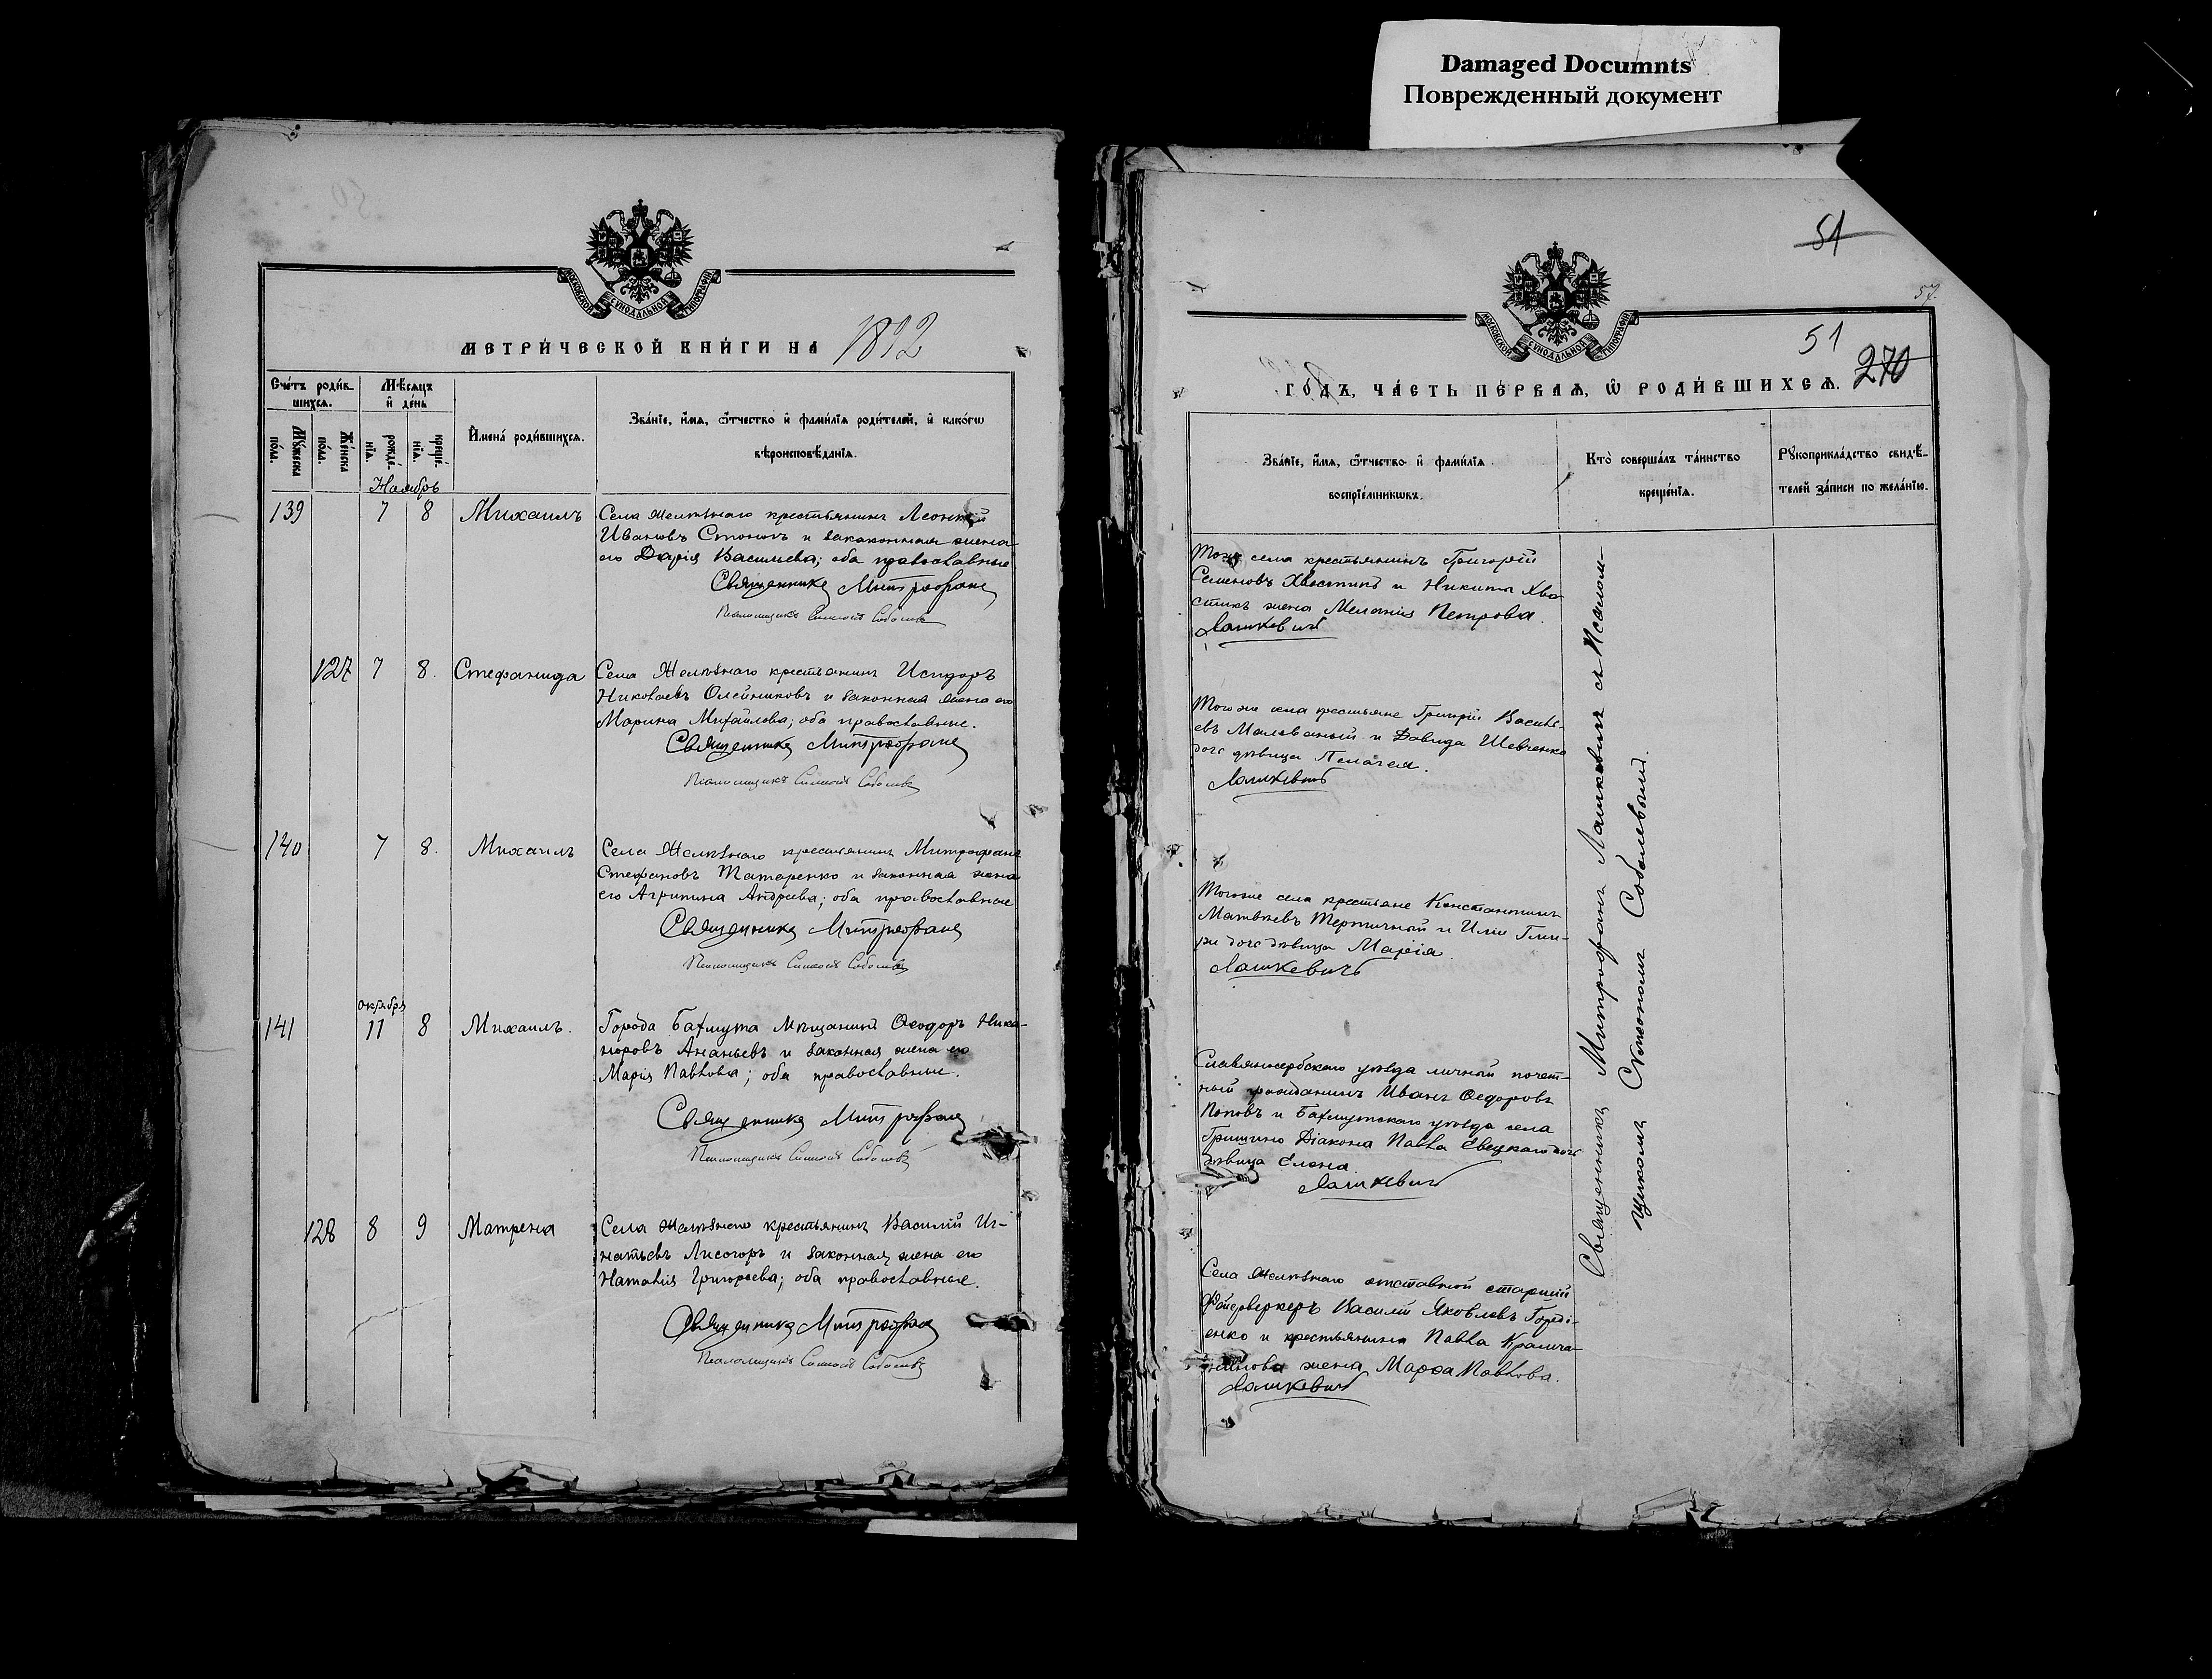 Damaged Documnts
Поврежденный документ
МОСКОВСКОЙ СѴНОДАЛЬНОЙ ТИПОГРАФІИ
МЕТРИ́ЧЕСКОЙ КНИ́ГИ НА 1892
Сче́тъ роди́в-
шихсѧ.
Мѣ́сѧцъ
и҆ де́нь
Мꙋ́жеска
по́ла.
Же́нска
по́ла.
рожде́-
нїѧ.
креще́-
нїѧ.
И҆мена̀ роди́вшихсѧ.
Зва́нїе, и҆́мѧ, ѻ҆́тчество и҆ фами́лїѧ роди́телей, и҆ како́гѡ
вѣроисповѣ́данїѧ.
Ноябрь
139 7 8 Михаилъ Села Желѣзнаго крестьянинъ Леонтій
Ивановъ и законная жена
его Дарія Васильева; оба православные
Священникъ Митрофанъ
Псаломщикъ Соболевъ
127 7 8. Стефанида Села Желѣзнаго крестьянинъ Исидоръ
Николаевъ Олейниковъ и законная жена его
Марина Михайлова; оба православные.
Священникъ Митрофанъ
Псаломщикъ Соболевъ
140 7 8. Михаилъ Села Желѣзнаго крестьянинъ Митрофанъ
Стефановъ Татаренко и законная жена
его Агрипина Андреева; оба православные
Священникъ Митрофанъ
Псаломщикъ Соболевъ
октября
141 11 8 Михаилъ. Города Бахмута Мѣщанинъ Ѳеодоръ Ника-
норовъ Ананьевъ и законная жена его
Марія Павлова; оба православные.
Священникъ Митрофанъ
Псаломщикъ Соболевъ
128 8 9 Матрена Села Желѣзнаго крестьянинъ Василій Иг-
натьевъ Лисогоръ и законная жена его
Наталія Григорьева; оба православные.
Священникъ Митрофанъ
Псаломщикъ Соболевъ
51
57.
МОСКОВСКОЙ СѴНОДАЛЬНОЙ ТИПОГРАФІИ
51
270
ГО́ДЪ, ЧА́СТЬ ПЕ́РВАѦ, Ѡ҆ РОДИ́ВШИХСѦ.
Зва́нїе, и҆́мѧ, ѻ҆́тчество и҆ фами́лїѧ
воспрїе́мникѡвъ.
Кто̀ соверша́лъ та́инство
креще́нїѧ.
Рꙋкоприкла́дство свидѣ́-
телей за́писи по жела́нїю.
Тогоже села крестьянинъ Григорій
Семеновъ Хвостикъ и Никиты Хво-
стика жена Меланія Петрова.
Лашкевичъ
Тогоже села крестьяне Григорій Василь-
евъ Малеваный и Давида Шевченко
дочь дѣвица Пелагея.
Лашкевичъ
Тогоже села крестьяне Константинъ
Матвѣевъ Терпичный и Иліи
дочь дѣвица Марія
Лашкевичъ
Славяносербскаго уѣзда личный почет-
ный гражданинъ Иванъ Ѳедоровъ
Поповъ и Бахмутскаго уѣзда села
Гришино Діакона Павла Евецкаго дочь
дѣвица Елена
Лашкевичъ
Села Желѣзнаго отставной старшій
Фейерверкеръ Василій Яковлевъ Горді-
енко и крестьянина Павла
жена Марѳа Павлова.
Лашкевичъ
Священникъ Митрофанъ Лашкевичъ съ Псалом-
щикомъ Соболевымъ.